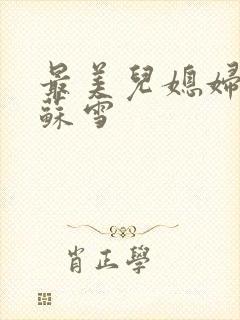 最美兒媳婦
蘇雪
肖正學